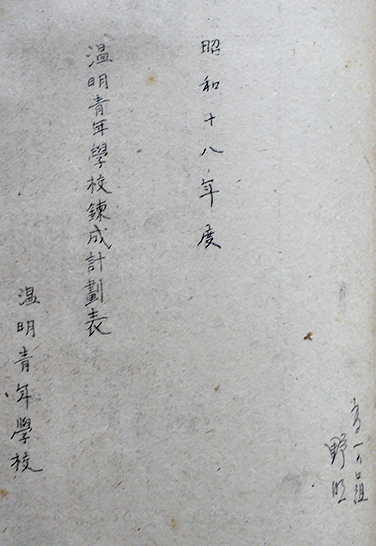 昭和十八年度
温明青年學校錬成計劃表
温明青年學校
野